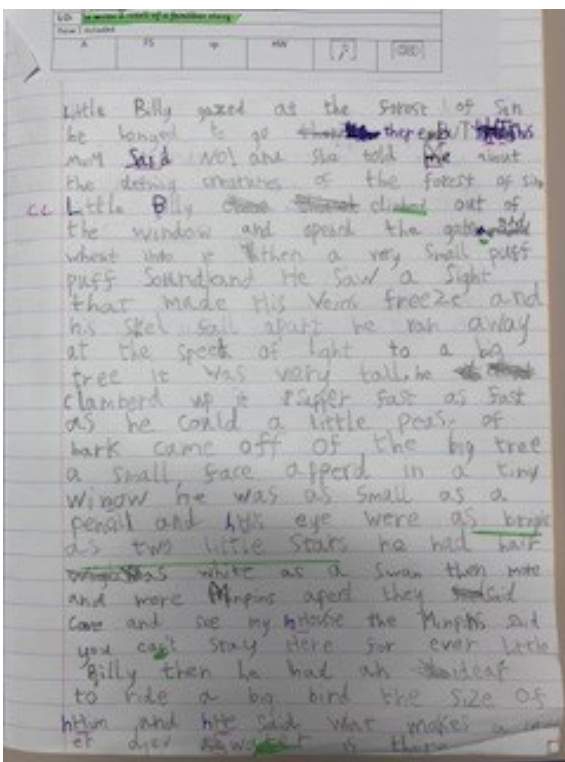 to write a retell of a familiar story
A PS HW
Little Billy gazed at the forest of Sin
he longed to go there BUT his
mum Said NO! and she told me about
the creatures of the forest of sin
CL Little Billy climbed out of
the window and the gate and
whent into it then a very Small puff
puff Sound and He Saw a Sight
that made His Veins freeze and
his skel fall apart he ran away
at the speed of light to a big
tree it was very tall. he
clamberd up it super fast as fast
as he could a little of
bark came off of the big tree
a small face apperd in a tiny
window he was as small as a
pencil and his eye were as bright
as two little Stars he had hair
as white as a Swan then more
and more Minpins they Said
Come and see my House the Minpins said
you can't stay Here for ever Little
Billy then he had an idear
to ride a big bird the size of
Him and He said what makes a
is there